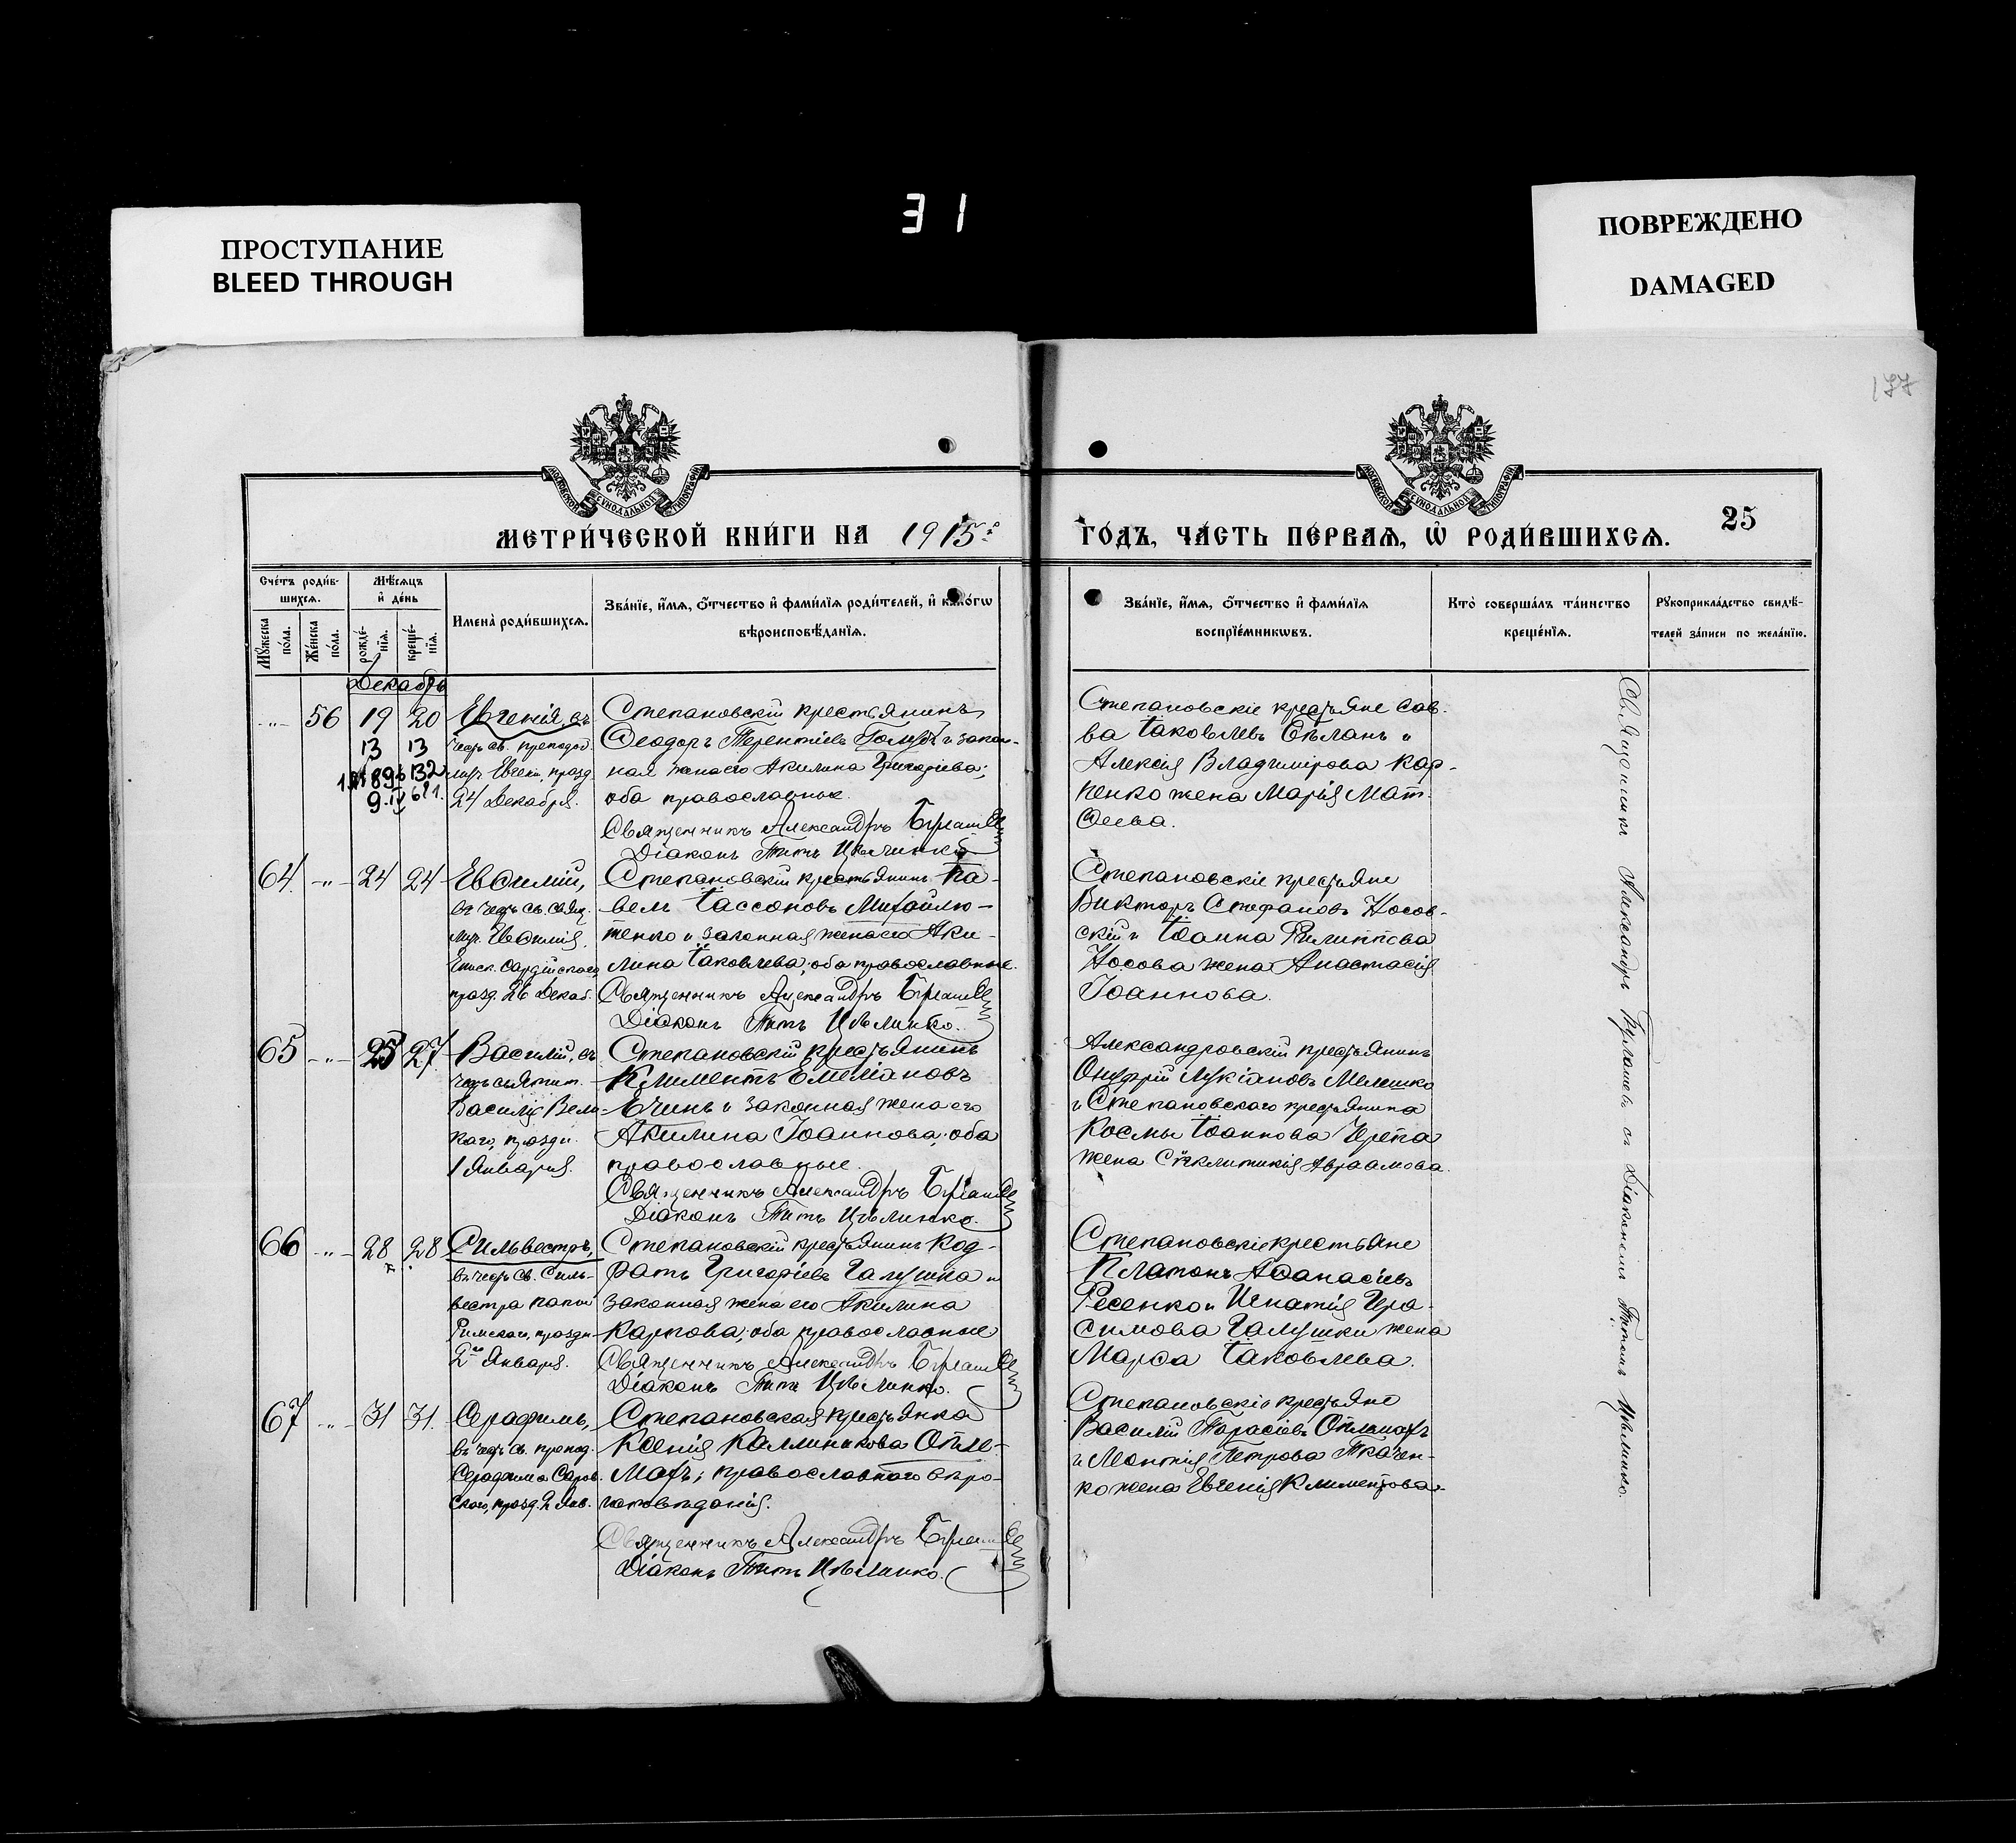 ПРОСТУПАНИЕ
BLEED THROUGH
31
ПОВРЕЖДЕНО
DAMAGED
177
МЕТРИ́ЧЕСКОЙ КНИ́ГИ НА 1915 г.
ГО́ДЪ, ЧА́СТЬ ПЕ́РВАѦ, Ѡ҆ РОДИ́ВШИХСѦ.
25
Сче́тъ роди́в-
шихсѧ.
Мѣ́сѧцъ
и҆ де́нь
Мꙋ́жеска
по́ла.
Же́нска
по́ла.
рожде́-
нїѧ.
креще́-
нїѧ.
Имена̀ роди́вшихсѧ.
Зва́нїе, и҆́мѧ, ѻ҆́тчество и҆ фами́лїѧ роди́телей, и҆ како́гѡ
вѣроисповѣ́данїѧ.
Зва́нїе, и҆́мѧ, ѻ҆́тчество и҆ фами́лїѧ
воспрїе́мникѡвъ.
Кто̀ соверша́лъ та́инство
креще́нїѧ.
Рꙋкоприкла́дство свидѣ́-
телей за́писи по жела́нїю.
Декабрь
-"- 56 19 20
13 13
Евгенія, въ
честь св. преподоб.
муч. Евгеніи, празд.
24 Декабря.
Степановскій крестьянинъ
Ѳеодоръ Терентіевъ и закон-
ная жена его Акилина Григоріева;
оба православные.
Священникъ Александръ
Діаконъ Титъ Цѣлинко
Степановскіе крестьяне Сав-
ва Іаковлевъ Бѣланъ и
Алексія Владимірова Кар-
пенко жена Марія Мат-
ѳеева.
64 -"- 24 24
Евѳимій,
въ честь св. свящ.
муч. Евѳимія,
Еписк. Сардійскаго,
празд. 26 Декаб.
Степановскій крестьянинъ Па-
велъ Іассоновъ Михайлю-
тенко и законная жена его Аки-
лина Іаковлева; оба православные.
Священникъ Александръ
Діаконъ Титъ Цѣлинко.
Степановскіе крестьяне
Викторъ Стефановъ Носов-
скій и Іоанна Филиппова
Носова жена Анастасія
Іоаннова.
65 -"- 25 27
Василій, въ
честь святит.
Василія Вели-
каго, праздн.
1 Января.
Степановскій крестьянинъ
Климентъ Емеліановъ
Ечинъ и законная жена его
Акилина Іоаннова; оба
православные.
Священникъ Александръ
Діаконъ Титъ Цѣлинко.
Александровскій крестьянинъ
Онуфрій Лукіановъ Мелешко
и Степановскаго крестьянина
Космы Іоаннова Черепа
жена Сѵнклитикія Авраамова.
66 -"- 28 28
Сильвестръ,
въ честь св. Силь-
вестра папы
Римскаго, праздн.
2го Января.
Степановскій крестьянинъ Код-
ратъ Григоріевъ Галушка и
законная жена его Акилина
Карпова; оба православные
Священникъ Александръ
Діаконъ Титъ Цѣлинко.
Степановскіе крестьяне
Платонъ Аѳанасіевъ
Фесенко и Игнатія Гера-
симова Галушки жена
Марѳа Іаковлева.
67 -"- 31 31
Серафимъ,
въ честь св. препод.
Серафима Саров-
скаго, празд. 2 Янв.
Степановская крестьянка
Ксенія Каллиникова Отле-
махъ; православнаго вѣро-
исповѣданія.
Священникъ Александръ
Діаконъ Титъ Цѣлинко.
Степановскіе крестьяне
Василій Тарасіевъ Отлемахъ
и Леонтія Петрова Ткачен-
ко жена Евгенія Климентова.
Священникъ Александръ съ Діакономъ Титомъ Цѣлинко.